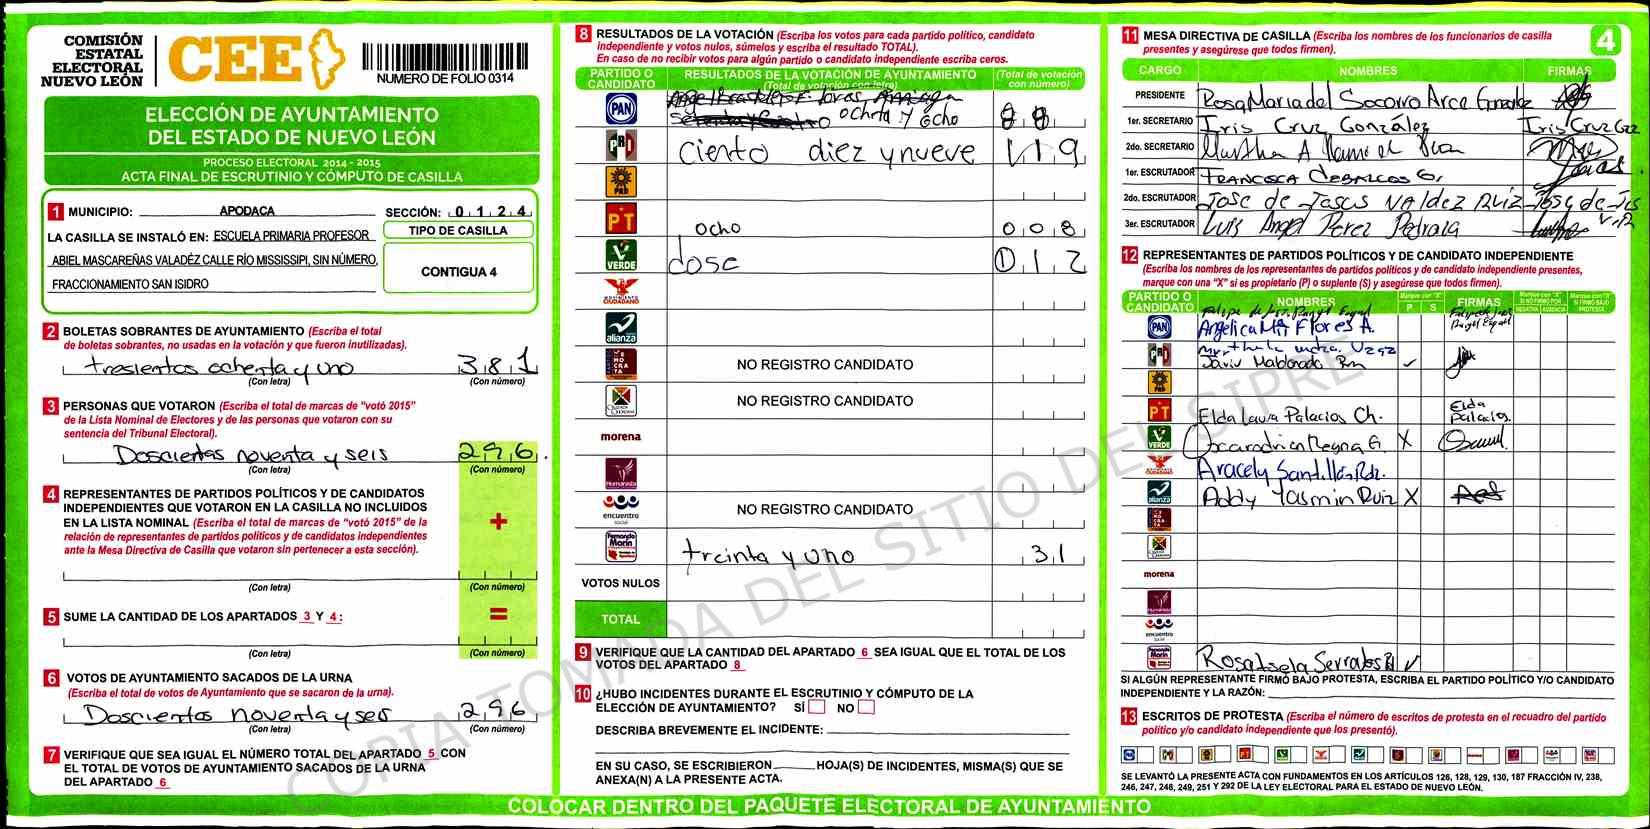 COMISIÓN
ESTATAL
ELECTORAL
NUEVO LEÓN
CEE
NUMERO DE FOLIO 0314
ELECCIÓN DE AYUNTAMIENTO
DEL ESTADO DE NUEVO LEÓN
PROCESO ELECTORAL 2014 - 2015
ACTA FINAL DE ESCRUTINIO Y CÓMPUTO DE CASILLA
1 MUNICIPIO: APODACA SECCIÓN: 0 1 2 4
LA CASILLA SE INSTALÓ EN: ESCUELA PRIMARIA PROFESOR
ABIEL MASCAREÑAS VALADÉZ CALLE RÍO MISSISIPI, SIN NÚMERO,
FRACCIONAMIENTO SAN ISIDRO
TIPO DE CASILLA
CONTIGUA 4
2 BOLETAS SOBRANTES DE AYUNTAMIENTO (Escriba el total
de boletas sobrantes, no usadas en la votación y que fueron inutilizadas).
tresientos ochenta y uno 381
(Con letra) (Con número)
3 PERSONAS QUE VOTARON (Escriba el total de marcas de “votó 2015”
de la Lista Nominal de Electores y de las personas que votaron con su
sentencia del Tribunal Electoral).
Doscientos noventa y seis 296.
(Con letra) (Con número)
4 REPRESENTANTES DE PARTIDOS POLÍTICOS Y DE CANDIDATOS
INDEPENDIENTES QUE VOTARON EN LA CASILLA NO INCLUIDOS
EN LA LISTA NOMINAL (Escriba el total de marcas de “votó 2015” de la
relación de representantes de partidos políticos y de candidatos independientes
ante la Mesa Directiva de Casilla que votaron sin pertenecer a esta sección).
+
(Con letra) (Con número)
5 SUME LA CANTIDAD DE LOS APARTADOS 3 Y 4:
=
(Con letra) (Con número)
6 VOTOS DE AYUNTAMIENTO SACADOS DE LA URNA
(Escriba el total de votos de Ayuntamiento que se sacaron de la urna).
Doscientos noventa y seis 296
(Con letra) (Con número)
7 VERIFIQUE QUE SEA IGUAL EL NÚMERO TOTAL DEL APARTADO 5 CON
EL TOTAL DE VOTOS DE AYUNTAMIENTO SACADOS DE LA URNA
DEL APARTADO 6
8 RESULTADOS DE LA VOTACIÓN (Escriba los votos para cada partido político, candidato
independiente y votos nulos, súmelos y escriba el resultado TOTAL).
En caso de no recibir votos para algún partido o candidato independiente escriba ceros.
PARTIDO O CANDIDATO RESULTADOS DE LA VOTACIÓN DE AYUNTAMIENTO (Total de votación con letra) (Total de votación con número)
PAN ochota y ocho 88
PRI ciento diez y nueve 119
PRD
PT ocho 008
VERDE dose 012
MOVIMIENTO CIUDADANO
alianza
DEMOCRATA NO REGISTRO CANDIDATO
CRUZADA CIUDADANA NO REGISTRO CANDIDATO
morena
Humanista
encuentro social NO REGISTRO CANDIDATO
Fernando Marín treinta y uno 31
VOTOS NULOS
TOTAL
9 VERIFIQUE QUE LA CANTIDAD DEL APARTADO 6 SEA IGUAL QUE EL TOTAL DE LOS
VOTOS DEL APARTADO 8
10 ¿HUBO INCIDENTES DURANTE EL ESCRUTINIO Y CÓMPUTO DE LA
ELECCIÓN DE AYUNTAMIENTO? SÍ NO
DESCRIBA BREVEMENTE EL INCIDENTE:
EN SU CASO, SE ESCRIBIERON HOJA(S) DE INCIDENTES, MISMA(S) QUE SE
ANEXA(N) A LA PRESENTE ACTA.
11 MESA DIRECTIVA DE CASILLA (Escriba los nombres de los funcionarios de casilla
presentes y asegúrese que todos firmen).
4
CARGO NOMBRES FIRMAS
PRESIDENTE Rosa Maria del Socorro Arce Gonzalez
1er. SECRETARIO Iris Cruz González Iris Cruz Gzz
2do. SECRETARIO Martha A
1er. ESCRUTADOR FRANCISCA CEBALLOS G.
2do. ESCRUTADOR Jose de Jesus VAldez RUiz Jose de Jes
3er. ESCRUTADOR Luis Angel Perez Pedraza
12 REPRESENTANTES DE PARTIDOS POLÍTICOS Y DE CANDIDATO INDEPENDIENTE
(Escriba los nombres de los representantes de partidos políticos y de candidato independiente presentes,
marque con una “X” si es propietario (P) o suplente (S) y asegúrese que todos firmen).
PARTIDO O CANDIDATO NOMBRES Marque con “X” P S FIRMAS Marque con “X” SI NO FIRMÓ POR NEGATIVA AUSENCIA Marque con “X” SI FIRMÓ BAJO PROTESTA
Felipe de Jess. Rangel
PAN Angelica Ma Flores A.
PRI Javier Maldonado
PRD
PT Elda Laura Palacios Ch. Elda Palacios.
VERDE Oscar adrian Reyna G. X
Aracely Santillán Rdz.
alianza Addy Yasmin Ruiz X
morena
encuentro social
Fernando Marín Rosa Isela Serratos
SI ALGÚN REPRESENTANTE FIRMÓ BAJO PROTESTA, ESCRIBA EL PARTIDO POLÍTICO Y/O CANDIDATO
INDEPENDIENTE Y LA RAZÓN:
13 ESCRITOS DE PROTESTA (Escriba el número de escritos de protesta en el recuadro del partido
político y/o candidato independiente que los presentó).
SE LEVANTÓ LA PRESENTE ACTA CON FUNDAMENTOS EN LOS ARTÍCULOS 126, 128, 129, 130, 187 FRACCIÓN IV, 238,
246, 247, 248, 249, 251 Y 292 DE LA LEY ELECTORAL PARA EL ESTADO DE NUEVO LEÓN.
COLOCAR DENTRO DEL PAQUETE ELECTORAL DE AYUNTAMIENTO
COPIA TOMADA DEL SITIO DEL SIPRE